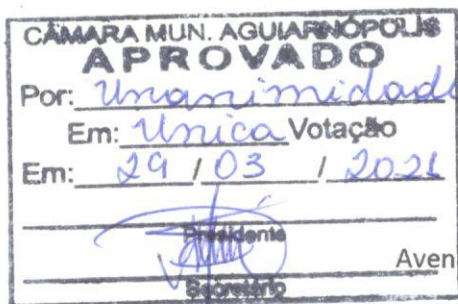 CÂMARA MUN. AGUIARNÓPOLIS
APROVADO
Por: Unanimidade
Em: Unica Votação
Em: 29 / 03 / 2021
Presidente
Aven
Secretário